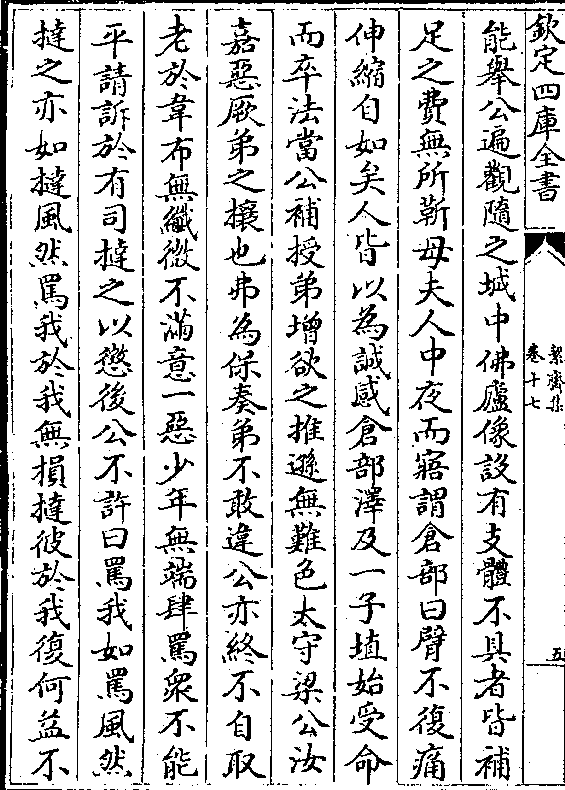 欽定四庫全書
絜齋集
卷十七
五
能舉公遍觀隨之城中佛廬像設有支體不具者皆補
足之費無所靳母夫人中夜而寤謂倉部曰臂不復痛
伸縮自如矣人皆以為誠感倉部澤及一子埴始受命
而卒法當公補授弟增欲之推遜無難色太守梁公汝
嘉惡厥弟之攘也弗為保奏弟不敢違公亦終不自取
老於韋布無纖微不滿意一惡少年無端肆罵衆不能
平請訴於有司撻之以懲後公不許曰罵我如罵風然
撻之亦如撻風然罵我於我無損撻彼於我復何益不